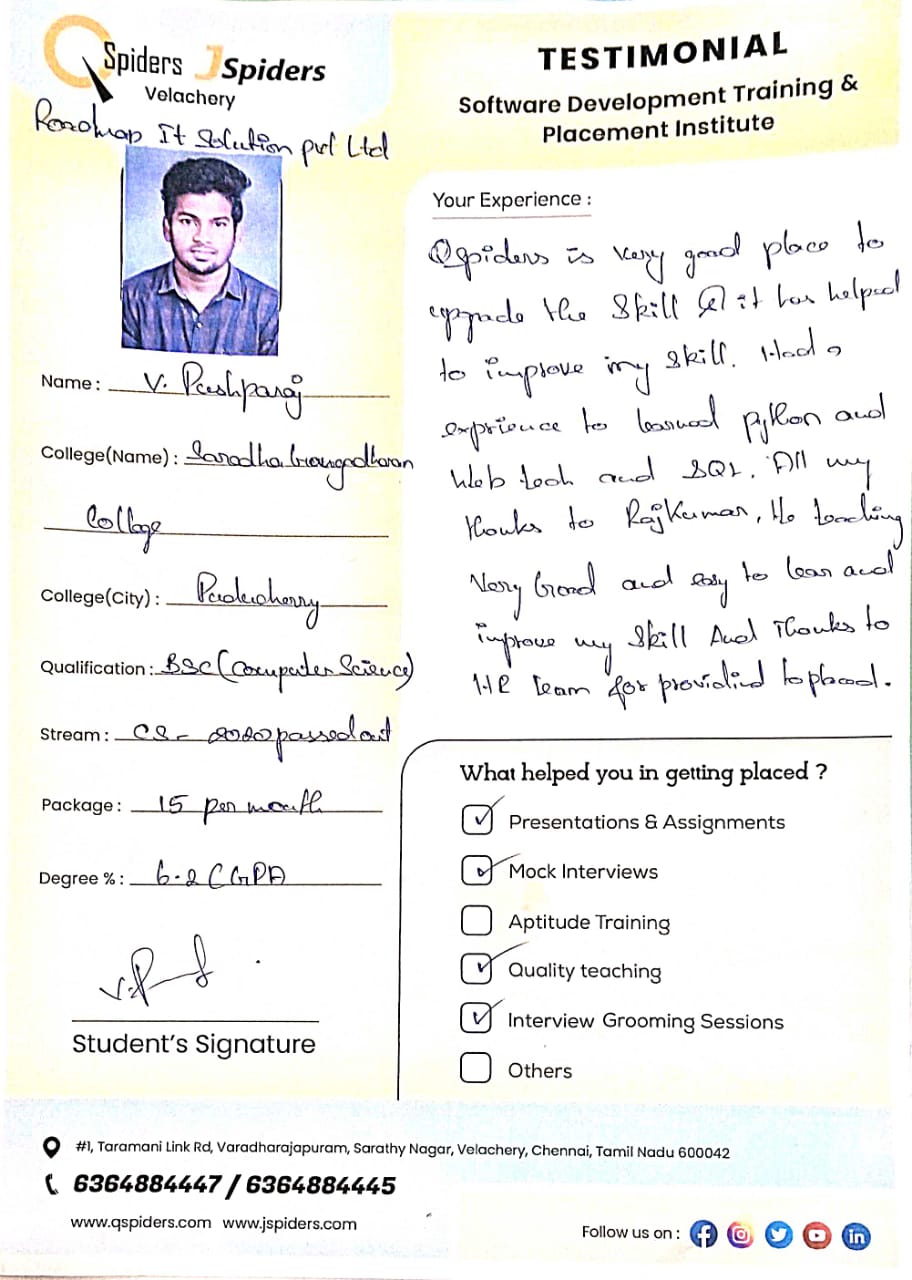 QSpiders JSpiders
Velachery
Roadmap It Solution pvt Ltd
TESTIMONIAL
Software Development Training &
Placement Institute
Name : V. Pushparaj
College(Name) : Saradha Gangadharan
College
College(City) : Puducherry
Qualification : BSC (Computer Science)
Stream : CS - 2020 passed out
Package : 15 per month
Degree % : 6.2 CGPA
Student's Signature
Your Experience :
Qspiders is very good place to
upgrade the Skill & it has helped
to improve my skill. Had a
exprience to learned python and
Web tech and SQL. All my
thanks to RajKumar, He teaching
Very Good and easy to lean and
improve my Skill And Thanks to
HR team for to placed.
What helped you in getting placed ?
Presentations & Assignments
Mock Interviews
Aptitude Training
Quality teaching
Interview Grooming Sessions
Others
#1, Taramani Link Rd, Varadharajapuram, Sarathy Nagar, Velachery, Chennai, Tamil Nadu 600042
6364884447 / 6364884445
www.qspiders.com www.jspiders.com
Follow us on :